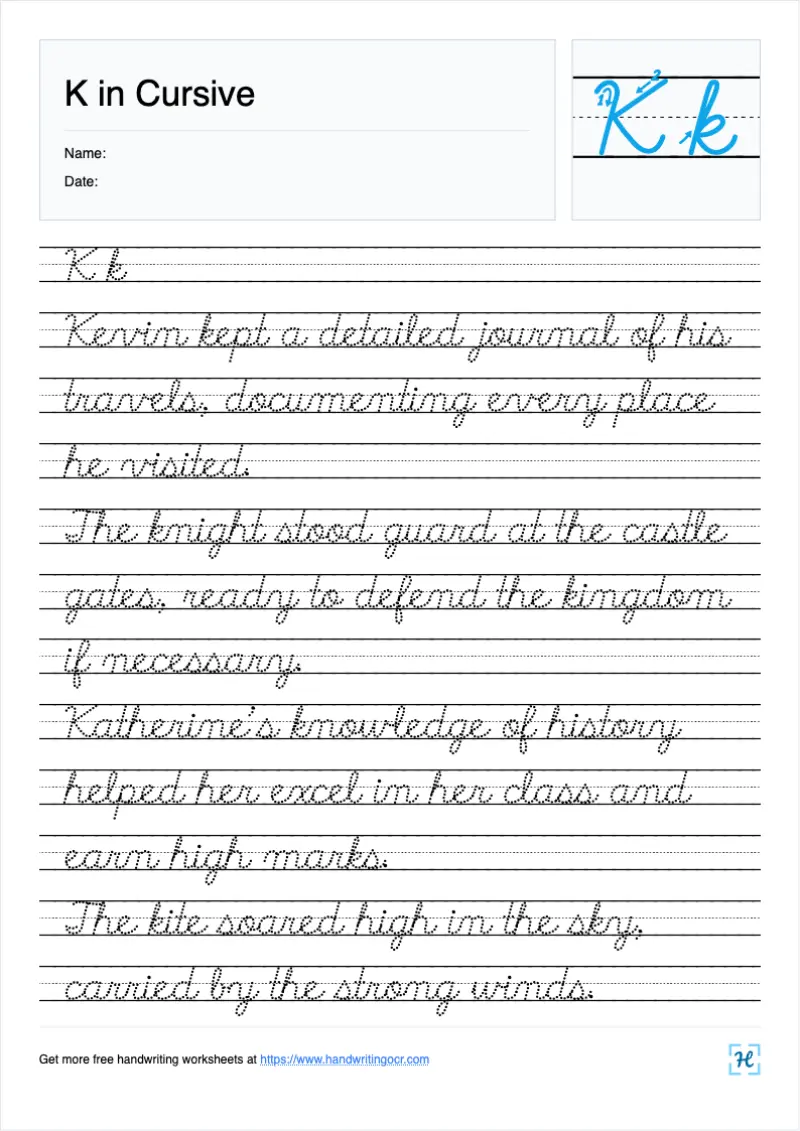 K in Cursive
Name:
Date:
1 2
K k
K k
Kevin kept a detailed journal of his
travels, documenting every place
he visited.
The knight stood guard at the castle
gates, ready to defend the kingdom
if necessary.
Katherine's knowledge of history
helped her excel in her class and
earn high marks.
The kite soared high in the sky,
carried by the strong winds.
Get more free handwriting worksheets at https://www.handwritingocr.com
H